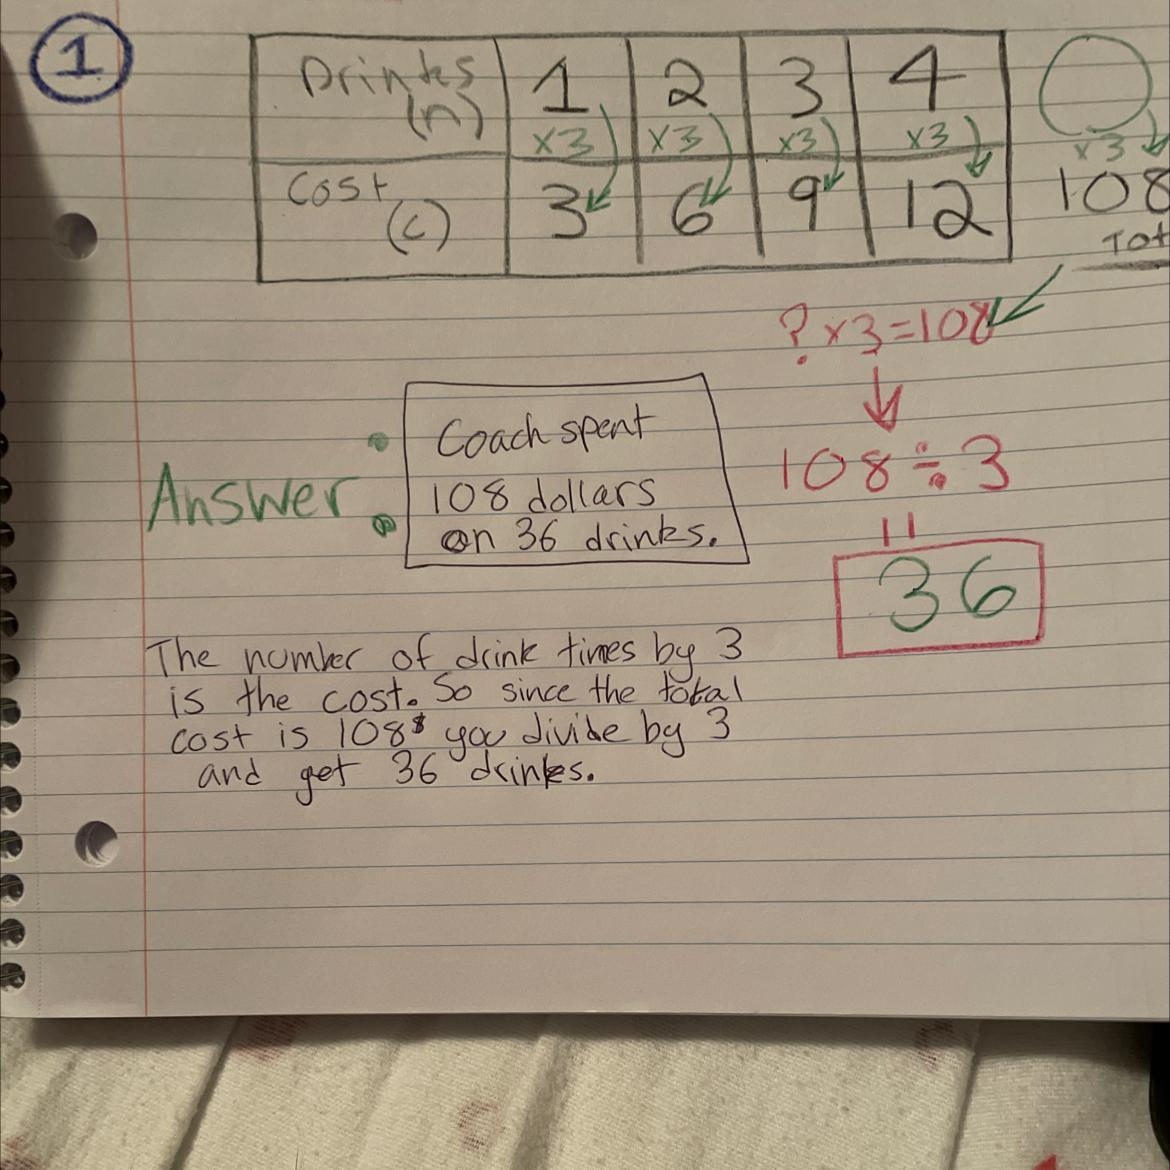 1
Drinks 1 2 3 4
(n) x3 x3 x3 x3 x3
Cost 3 6 9 12 108
(c)
Tot
? x 3 = 108
Coach spent
108 ÷ 3
Answer: 108 dollars
on 36 drinks.
=
36
The number of drink times by 3
is the cost. So since the total
cost is 108$ you divide by 3
and get 36 drinks.